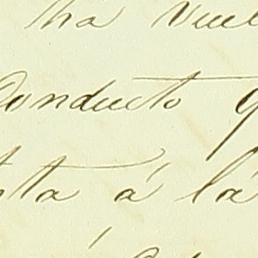 ha vuel
Conducto q
ta á la